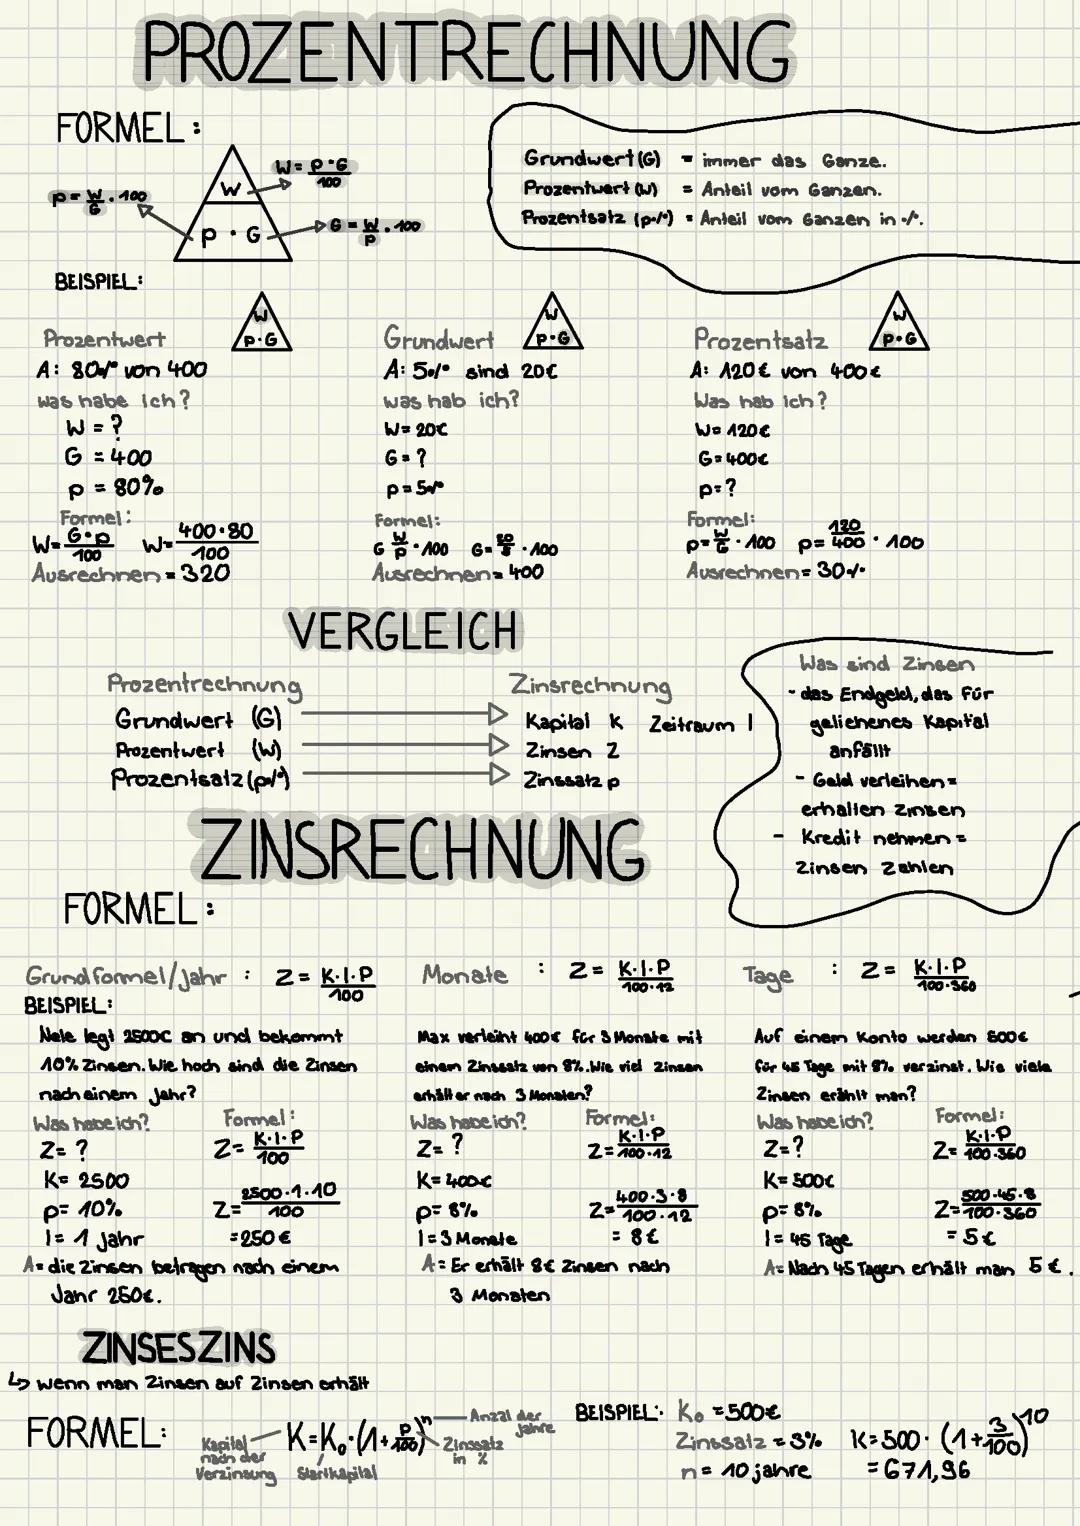 PROZENTRECHNUNG
FORMEL:
W = p·G / 100
p = W/G · 100
W
p · G
G = W/p · 100
Grundwert (G) = immer das Ganze.
Prozentwert (W) = Anteil vom Ganzen.
Prozentsatz (p%) = Anteil vom Ganzen in %.
BEISPIEL:
Prozentwert
W
p·G
A: 80% von 400
was habe ich?
W = ?
G = 400
p = 80%
Formel:
W = G·p / 100 W = 400·80 / 100
Ausrechnen = 320
Grundwert
W
p·G
A: 5% sind 20€
was hab ich?
W = 20€
G = ?
p = 5%
Formel:
G W/p · 100 G = 20/5 · 100
Ausrechnen = 400
Prozentsatz
W
p·G
A: 120€ von 400€
Was hab ich?
W = 120€
G = 400€
p = ?
Formel:
p = W/G · 100 p = 120/400 · 100
Ausrechnen = 30%
VERGLEICH
Prozentrechnung Zinsrechnung
Grundwert (G) Kapital K Zeitraum I
Prozentwert (W) Zinsen Z
Prozentsatz (p%) Zinssatz p
Was sind Zinsen
- das Endgeld, das für
geliehenes Kapital
anfällt
- Geld verleihen =
erhalten Zinsen
- Kredit nehmen =
Zinsen Zahlen
ZINSRECHNUNG
FORMEL:
Grundformel/Jahr : Z = K·I·P / 100
Monate : Z = K·I·P / 100·12
Tage : Z = K·I·P / 100·360
BEISPIEL:
Nele legt 2500€ an und bekommt
10% Zinsen. Wie hoch sind die Zinsen
nach einem Jahr?
Was habe ich? Formel:
Z = ? Z = K·I·P / 100
K = 2500
p = 10% Z = 2500·1·10 / 100
I = 1 Jahr = 250€
A = die Zinsen betragen nach einem
Jahr 250€.
Max verleiht 400€ für 3 Monate mit
einem Zinssatz von 8%. Wie viel Zinsen
erhält er nach 3 Monaten?
Was habe ich? Formel:
Z = ? Z = K·I·P / 100·12
K = 400€
p = 8% Z = 400·3·8 / 100·12
I = 3 Monate = 8€
A = Er erhält 8€ Zinsen nach
3 Monaten
Auf einem Konto werden 500€
für 45 Tage mit 8% verzinst. Wie viele
Zinsen erählt man?
Was habe ich? Formel:
Z = ? Z = K·I·P / 100·360
K = 500€
p = 8% Z = 500·45·8 / 100·360
I = 45 Tage = 5€
A = Nach 45 Tagen erhält man 5€.
ZINSESZINS
↳ wenn man Zinsen auf Zinsen erhält
FORMEL: K = K₀·(1 + p/100)ⁿ
Anzal der
Jahre
Zinssatz
in %
Kapital
nach der
Verzinsung
Startkapital
BEISPIEL: K₀ = 500€
Zinssatz = 3% K = 500·(1 + 3/100)¹⁰
n = 10 jahre = 671,96